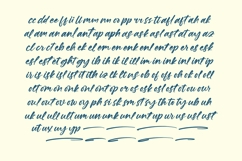 cc dd ee ff ii ll mm nn oo pp rr ss tt af al aft ah ak
al am an anl ant ap aph as ask asl ast at arg az
cl cr ct eb eh ek el em en enk enl ent ep er es esk
esl est et ght gy ib ih ik il ill im in ink inl int ip
ir is isk isl ist ith itz lk ll ns ob of ofs oh ok ol oll
olt om on onk onl ont op or os osk osl ost ot ou our
out ovt ov oy ph si sk sm st sy th te ty ub uh
uk ul ull ult um un unk unl unt up ur us usl ust
ut ux uy ypp